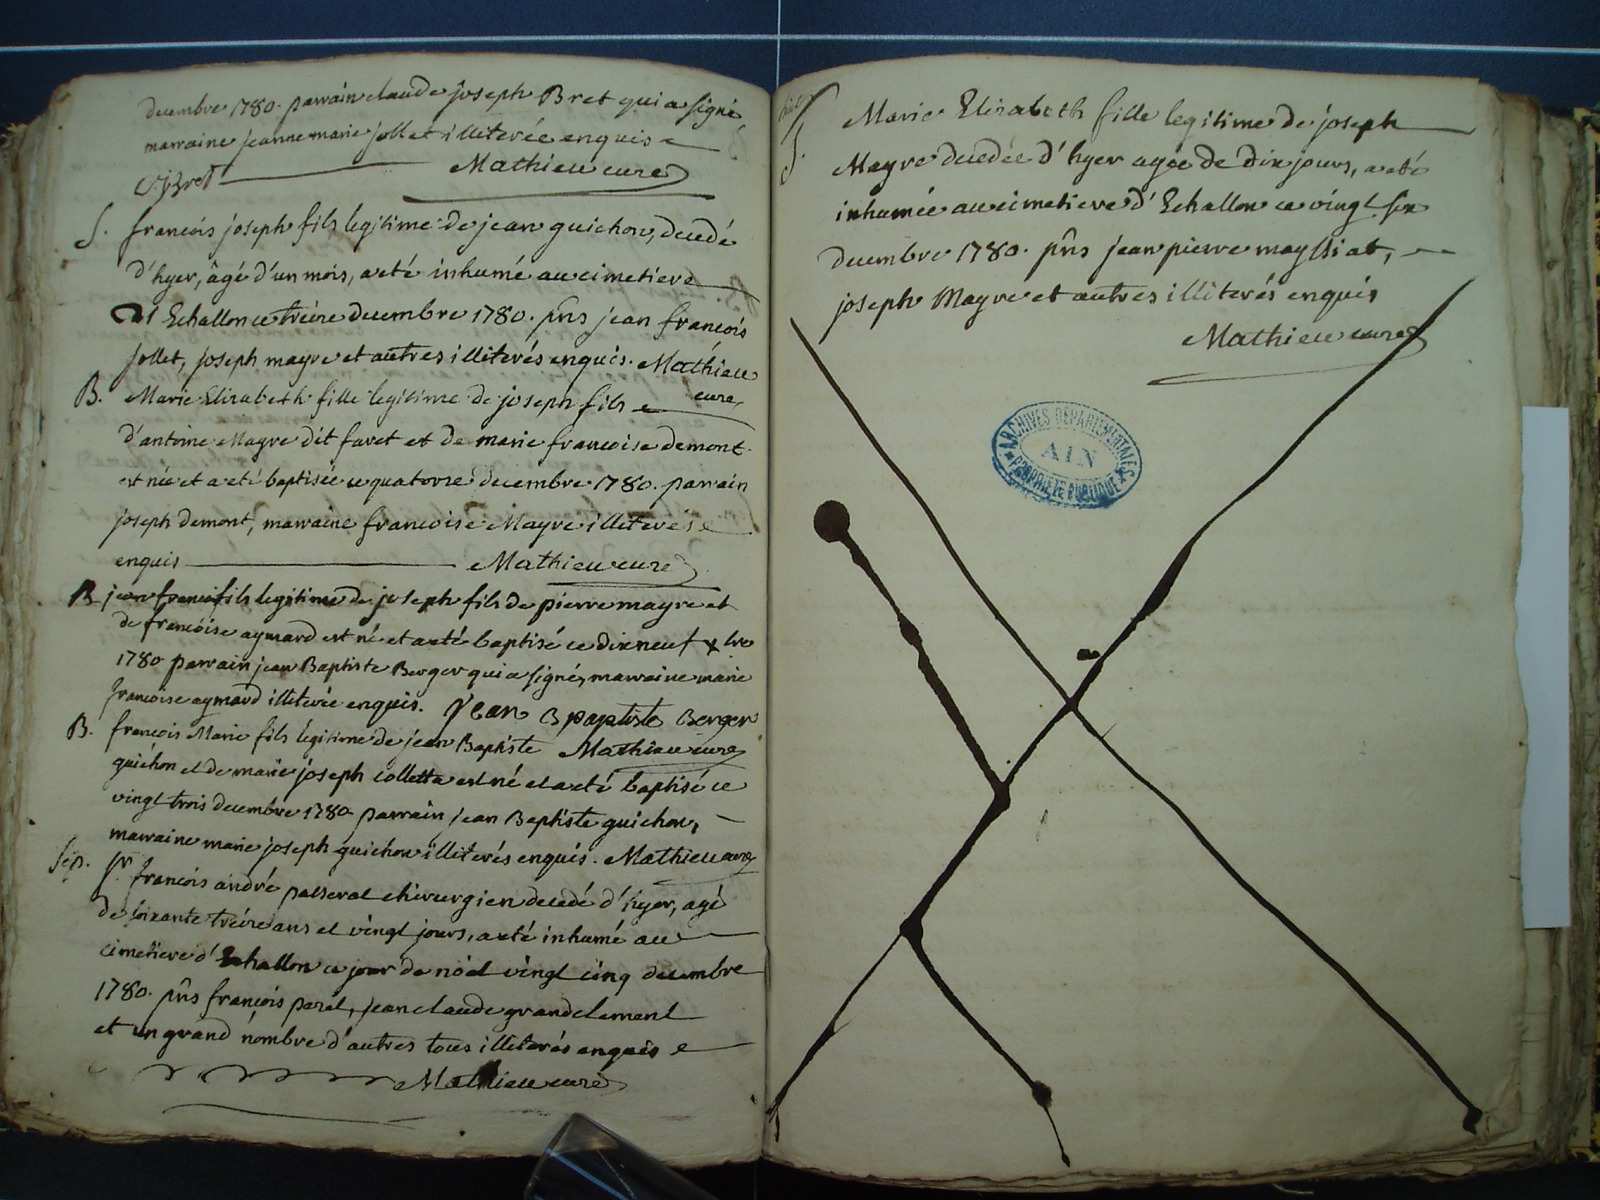 decembre 1780. parrain claude joseph Bret qui a signé
marraine jeanne marie jollet illiterée enquise
C. j. Bret Mathieu curé
S. francois joseph fils legitime de jean guichon, decedé
d'hyer, âgé d'un mois, a eté inhumé au cimetiere
d'Echallon ce treize decembre 1780. pñs jean francois
jollet, joseph mayre et autres illiterés enquis. Mathieu
curé
B. Marie Elizabeth fille legitime de joseph fils
d'antoine Mayre dit favet et de marie francoise demont
est née et a eté baptisée ce quatorze decembre 1780. parrain
joseph demont, marraine francoise Mayre illiterés
enquis Mathieu curé
B jean francois fils legitime de joseph fils de pierre mayre et
de francoise aymard est né et a eté baptisé ce dix neuf xbre
1780 parrain jean Baptiste Berger qui a signé, marraine marie
francoise aymard illiterée enquis. jean Bpaptiste Berger
B. francois Marie fils legitime de jean Baptiste Mathieu curé
guichon et de marie joseph colletta est né et a eté baptisé ce
vingt trois decembre 1780 parrain jean Baptiste guichon,
marraine marie joseph guichon illiterés enquis. Mathieu curé
Sep. Sr. francois andré passerat chirurgien decedé d'hyer, agé
de soixante treize ans et vingt jours, a eté inhumé au
cimetiere d'Echallon ce jour de nöel vingt cinq decembre
1780. pñs françois parat, jean claude grandclement
et un grand nombre d'autres tous illiterés enquis
Mathieu curé
S. Marie Elizabeth fille legitime de joseph
Mayre decedée d'hyer agée de dix jours, a eté
inhumée au cimetiere d'Echallon ce vingt six
decembre 1780. pñs jean pierre mayssiat,
joseph Mayre et autres illiterés enquis
Mathieu curé
ARCHIVES DÉPARTEMENTALES
AIN
PROPRIÉTÉ PUBLIQUE